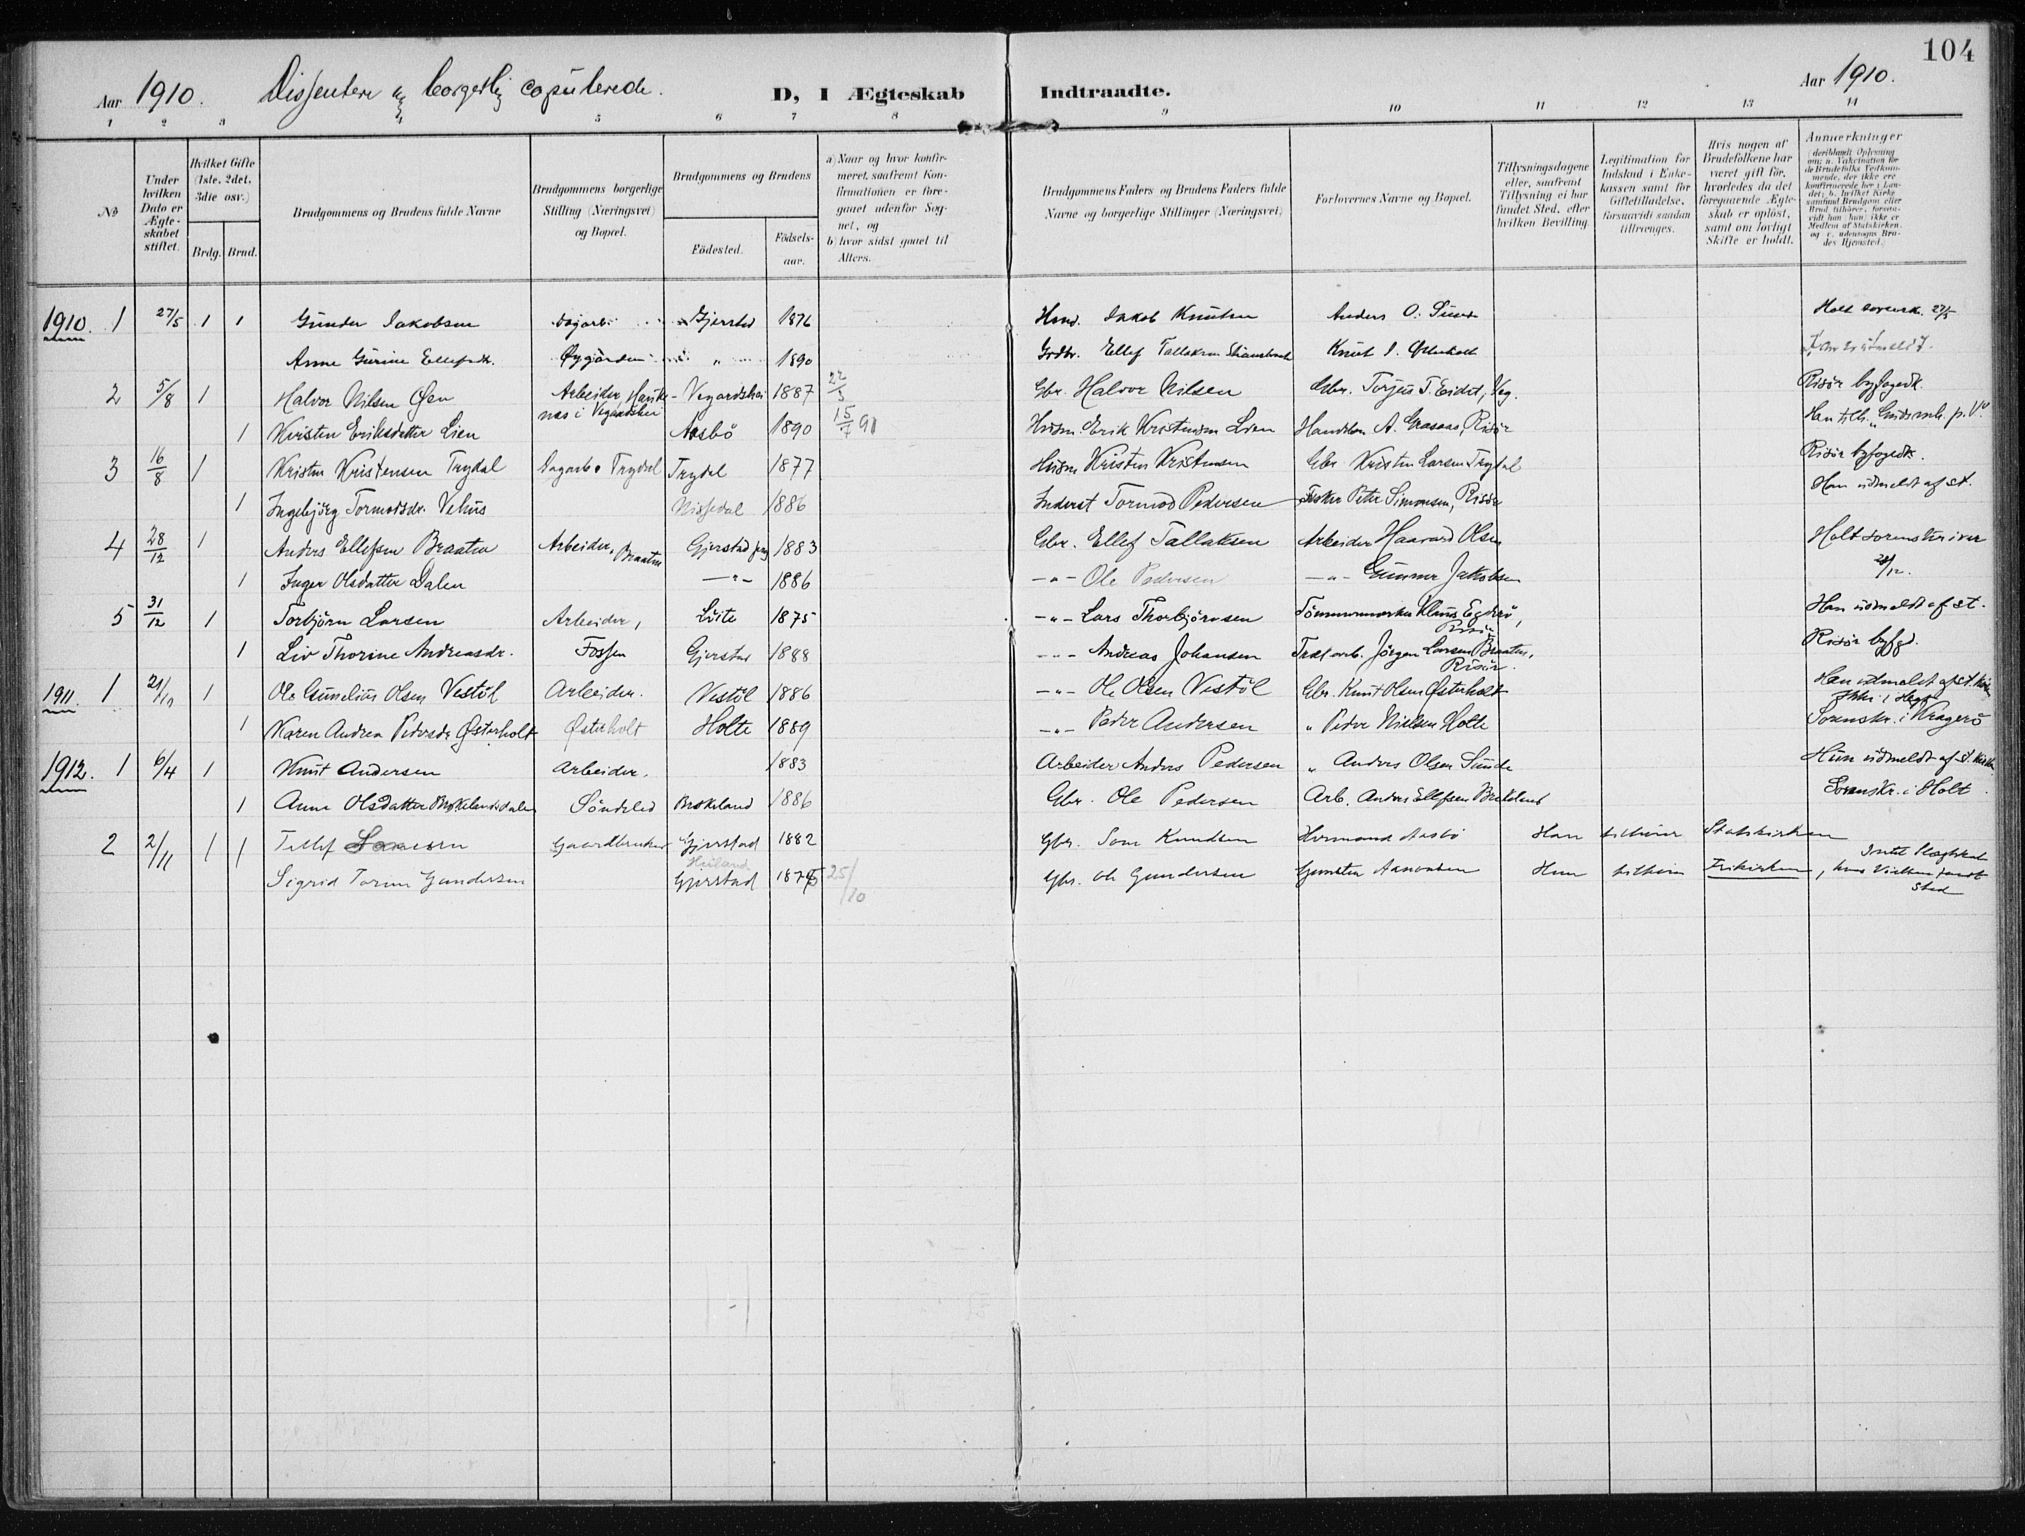 104
Aar 1910. Dissentere og borgerlig copulerede. D, I Ægteskab Indtraadte. Aar 1910.
1 2 3 4 5 6 7 8 9 10 11 12 13 14
№
Under hvilken Dato er Ægteskabet stiftet.
Hvilket Gifte (1ste, 2det, 3die osv.)
Brdg. Brud.
Brudgommens og Brudens fulde Navne
Brudgommens borgerlige Stilling (Næringsvei) og Bopæl.
Brudgommens og Brudens
Födested. Födselsaar.
a) Naar og hvor konfirmeret, saafremt Konfirmationen er foregaaet udenfor Sognet, og
b) hvor sidst gaaet til Alters.
Brudgommens Faders og Brudens Faders fulde Navne og borgerlige Stillinger (Næringsvei)
Forlovernes Navne og Bopæl.
Tillysningsdagene eller, saafremt Tillysning ei har fundet Sted, efter hvilken Bevilling.
Legitimation for Indskud i Enkekassen samt for Giftetilladelse, forsaavidt saadan tiltrænges.
Hvis nogen af Brudefolkene har været gift för, hvorledes da det foregaaende Ægteskab er oplöst, samt om lovligt Skifte er holdt.
Anmærkninger (deriblandt Oplysning om: a. Vakcination for de Brudefolks Vedkommende, der ikke ere konfirmerede her i Landet; b. hvilket Kirkesamfund Brudgom eller Brud tilhörer, forsaavidt han (hun) ikke er Medlem af Statskirken. og c. udensogns Brudes Hjemsted.)
1910. 1 27/5 1 1 Gunder Jakobsen Gjerstad 1876 Jakob Knutsen Anders O. Sunde Holt sorensk. 27/5
Anne Gurine Ellefsdr. Øygarden " 1890 Grdbr. Ellef Tallaksen Knut J. Østerholt
2 5/8 1 Halvor Nilsen Øen Arbeider, Vegardshei 1887 22/5 Gbr. Halvor Nilsen Gbr. Torjus T. Eidet, Veg. Risör byfogedk.
1 Kirsten Eriksdatter Lien Nesbö 1890 15/7 91 Husm. Erik Kristensen Lien Handelsm. A. Graaaas, Risör
3 16/8 1 Kristen Kristensen Trydal Dagarb. Trydal Trydal 1877 Husm. Kristen Kristensen Gbr. Kristen Larsen Trydal Risör byfogedk.
1 Ingebjörg Tormodsdr. Vehus Nissedal 1886 Inderst Tormod Pedersen Fisker Peter Simonsen, Risör Han udmeldt af st.
4 28/12 1 Anders Ellefsen Braaten Arbeider, Braaten Gjerstad 1883 Gbr. Ellef Tallaksen Arbeider Haavard Olsen Holt sorenskriver
1 Inger Olsdatter Dalen —"— 1886 —"— Ole Pedersen —"— Gunner Jakobsen 28/12.
5 31/12 1 Torbjörn Larsen Arbeider, Löite 1875 —"— Lars Thorbjörnsen Tömmermerker Klaus Egderö, Risör Han udmeldt af st.
1 Liv Thorine Andreasdr. Fossen Gjerstad 1888 —"— Andreas Johansen Trælarb. Jörgen Larsen Braaten, Risör. Risör byfgd.
1911. 1 21/10 1 Ole Gunelius Olsen Vestöl Arbeider. Vestöl 1886 —"— Ole Olsen Vestöl Gbr. Knut Olsen Østerholt Han udmeldt af st. kirken
1 Karen Andrea Pedersdr. Østerholt Østerholt Holte 1889 —"— Peder Andersen " Peder Nielsen Holte Sorenskr. i Kragerö
1912. 1 6/4 1 Knut Andersen Arbeider. 1883 Arbeider Anders Pedersen " Anders Olsen Sunde Hun udmeldt af st. kirken
1 Anne Olsdatter Brokelandsdalen Söndeled Brokeland 1886 Gbr. Ole Pedersen Arb. Anders Ellefsen Brokeland Sorenskr. i Holt
2 2/11 1 1 Tellef Gaardbruker Gjerstad 1882 Gbr. Knudsen Hermand Aasbö Han tilhörer Statskirken
Sigrid Gundersen Gjerstad 1875 25/10 Gbr. Ole Gundersen Gunsten Aanonsen Hun tilhörer Frikirken, Intet Slægtskab
hvor Vielsen fandt Sted